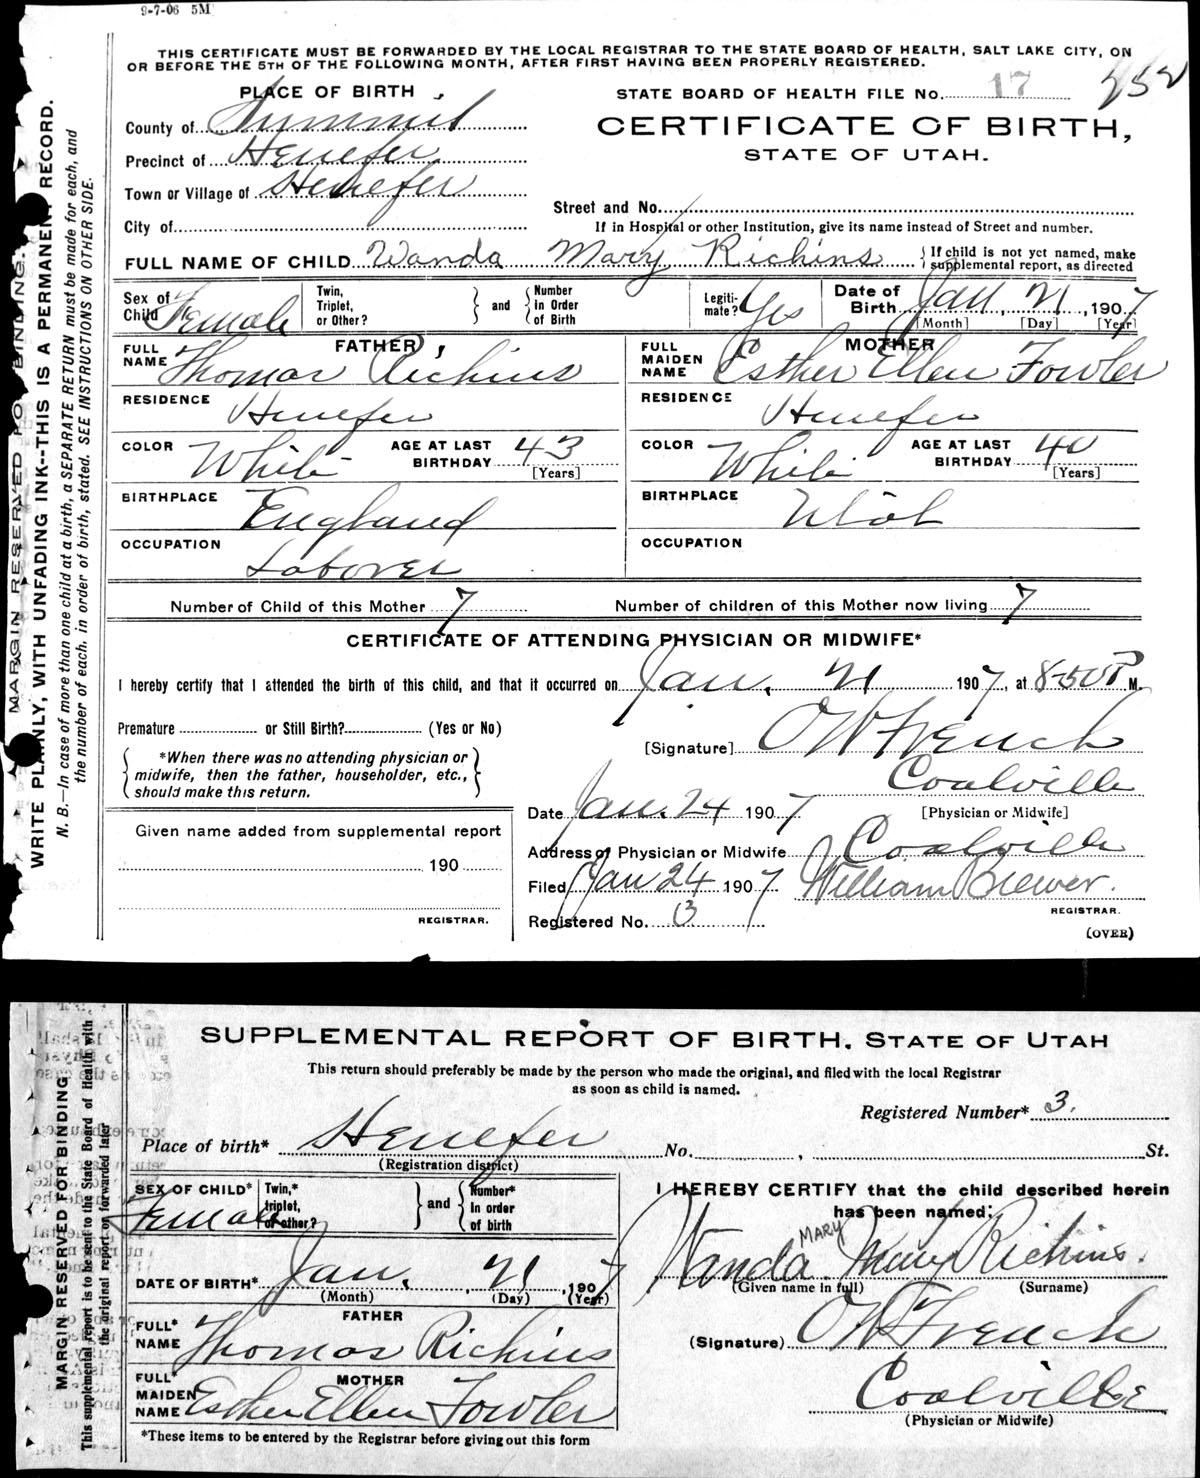 9-7-06 5M
THIS CERTIFICATE MUST BE FORWARDED BY THE LOCAL REGISTRAR TO THE STATE BOARD OF HEALTH, SALT LAKE CITY, ON
OR BEFORE THE 5TH OF THE FOLLOWING MONTH, AFTER FIRST HAVING BEEN PROPERLY REGISTERED.
252
PLACE OF BIRTH
STATE BOARD OF HEALTH FILE No. 17
County of Summit
CERTIFICATE OF BIRTH,
Precinct of Henefer
STATE OF UTAH.
Town or Village of Henefer
Street and No.
City of
If in Hospital or other Institution, give its name instead of Street and number.
FULL NAME OF CHILD Wanda Mary Richins
If child is not yet named, make supplemental report, as directed
Sex of Child Female
Twin, Triplet, or Other?
and
Number in Order of Birth
Legiti-mate? Yes
Date of Birth Jan 21, 1907
[Month] [Day] [Year]
FATHER
FULL NAME Thomas Richins
MOTHER
FULL MAIDEN NAME Esther Ellen Fowler
RESIDENCE Henefer
RESIDENCE Henefer
COLOR White AGE AT LAST BIRTHDAY 43 [Years]
COLOR White AGE AT LAST BIRTHDAY 40 [Years]
BIRTHPLACE England
BIRTHPLACE Utah
OCCUPATION Laborer
OCCUPATION
Number of Child of this Mother 7
Number of children of this Mother now living 7
CERTIFICATE OF ATTENDING PHYSICIAN OR MIDWIFE*
I hereby certify that I attended the birth of this child, and that it occurred on Jan. 21 1907, at 8-50 P M.
Premature or Still Birth? (Yes or No)
[Signature] O W French
*When there was no attending physician or
midwife, then the father, householder, etc.,
should make this return.
Coalville
[Physician or Midwife]
Date Jan. 24 1907
Given name added from supplemental report
190
REGISTRAR.
Address of Physician or Midwife Coalville
Filed Jan 24 1907 William Brewer.
REGISTRAR.
Registered No. 3
(OVER)
MARGIN RESERVED FOR BINDING.
WRITE PLAINLY, WITH UNFADING INK--THIS IS A PERMANENT RECORD.
N. B.—In case of more than one child at a birth, a SEPARATE RETURN must be made for each, and
the number of each, in order of birth, stated. SEE INSTRUCTIONS ON OTHER SIDE.
SUPPLEMENTAL REPORT OF BIRTH. STATE OF UTAH
This return should preferably be made by the person who made the original, and filed with the local Registrar
as soon as child is named.
Registered Number* 3.
Place of birth* Henefer No. , St.
(Registration district)
SEX OF CHILD* Female
Twin,* triplet, or other?
and
Number* In order of birth
I HEREBY CERTIFY that the child described herein
has been named:
MARY
Wanda Mary Richins.
(Given name in full) (Surname)
DATE OF BIRTH* Jan. 21, 1907
(Month) (Day) (Year)
FATHER
FULL* NAME Thomas Richins
(Signature) O W French
MOTHER
FULL* MAIDEN NAME Esther Ellen Fowler
Coalville
(Physician or Midwife)
*These items to be entered by the Registrar before giving out this form
MARGIN RESERVED FOR BINDING
This supplemental report is to be sent to the State Board of Health with
the original report on forwarded later